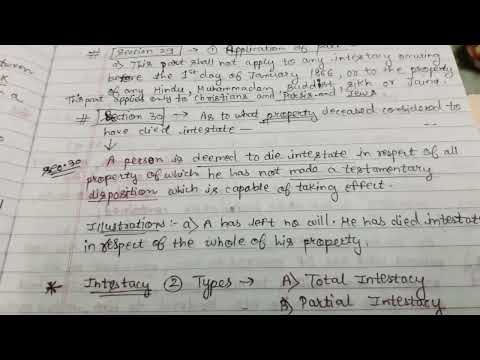 # [Section 29] → ① Application of part
a) This part shall not apply to any intestacy occuring
before the 1st day of January 1866, or to the property
of any Hindu, Muhammadan, Buddhist, Sikh or Jaina.
This part applies only to Christians and Parsis and Jews.
# [Section 30] → As to what property deceased considered to
have died intestate —
Sec. 30 A person is deemed to die intestate in respect of all
property of which he has not made a testamentary
disposition which is capable of taking effect.
Illustrations :- a) A has left no will. He has died intestate
in respect of the whole of his property.
* Intestacy ② Types → A) Total Intestacy
B) Partial Intestacy